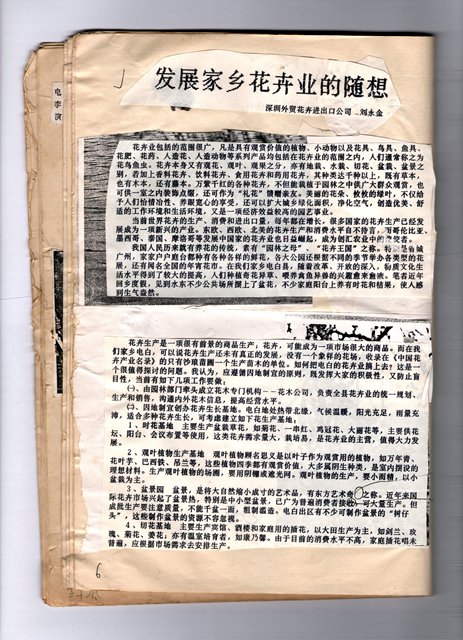 发展家乡花卉业的随想
深圳外贸花卉进出口公司 刘永金
花卉业包括的范围很广，凡是具有观赏价值的植物、小动物以及花具、鸟具、鱼具、
花肥、花药、人造花、人造动物等系列产品均包括在花卉业的范围之内，人们通常称之为
花鸟鱼虫。花卉本身又有观花、观叶、观果之分，亦有地栽、水栽、切花、盆栽、盆景之
别，若加上香料花卉、饮料花卉、食用花卉和药用花卉，其种类达千种以上，既有草本，
也有木本，还有藤本。万紫千红的各种花卉，不但能栽植于园林之中供广大群众观赏，也
可供一室之内装饰点缀，还可作为“礼花”馈赠亲友。美丽的花朵、枝枝的绿叶，不仅给
予人们怡情冶性、养眼宽心的享受，还可以扩大城乡绿化面积，净化空气，创造优美、舒
适的工作环境和生活环境，又是一项经济效益较高的园艺事业。
当前世界花卉的生产、消费和进出口量，每年都在增长，很多国家的花卉生产已经发
展成为一项新兴的产业。东欧、西欧、北美的花卉生产和消费水平自不待言，哥伦比亚、
墨西哥、泰国、摩洛哥等发展中国家的花卉业也日益崛起，成为创汇农业中的
我国人民历来就有养花的传统，素有“园林之母”、“花卉王国”之称。
广州，家家户户庭台都种有各种各样的鲜花，各大公园还根据不同的季节举办各类型的花
展，还有闻名全国的年宵花市。在我们家乡电白县，随着改革、开放的深入，物质文化生
活水平得到了较大的提高，人们种植奇花异草、喂养禽鱼异兽的兴趣愈来愈浓。笔者近年
回乡度假，见到水东不少公共场所摆上了盆花，不少家庭阳台上养有时花和桔果，使人感
到生气盎然。
花卉生产是一项很有前景的商品生产，花卉，可能成为一项市场很大的商品。而在我
们家乡电白，可以说花卉生产还未有真正的发展，没有一个象样的花场，收录在《中国花
卉产业名录》的只有沙琅苗圃一个生产苗木的单位。如何把电白的花卉业搞上去？这是一
个很值得探讨的问题。我认为，应遵循因地制宜的原则，既发挥大家的积极性，又防止盲
目性，当前有如下几项工作要做：
㈠、由园林部门牵头成立花木专门机构——花木公司，负责全县花卉业的统一规划、
生产和销售，沟通内外花木信息，提高经营水平。
㈡、因地制宜创办花卉生长基地。电白地处热带北缘，气候温暖，阳光充足，雨量充
沛，适合多种花卉生长，可考虑建立如下花卉生产基地：
1、时花基地 主要生产盆栽草花，如菊花、一串红、鸡冠花、大丽花等，主要供花
坛、阳台、会议布置等使用，这类花卉需求量大，栽培易，是花卉业的主营，值得大力发
展。
2、观叶植物生产基地 观叶植物顾名思义是以叶子作为观赏用的植物，如万年青、
花叶芋、巴西铁、吊兰等，这些植物四季都有观赏价值，大多属阴生种类，是室内摆设的
理想材料。生产观叶植物的场圃，要用阴棚或遮光网。观叶植物的生产，要小而精，以小
盆栽为主。
3、盆景园 盆景，是将大自然缩小成寸的艺术品，有东方艺术奇 之称。近年来国
际花卉市场兴起了盆景热，特别是中小型盆景，已广为普遍消费者接收，可大量生产。但
成批生产要注意质量，不能千盆一面，粗制滥造。电白出区有不少可制作盆景的“树仔
头”，这些制作盆景的资源不容忽视。
4、切花基地 主要生产宾馆、酒楼和家庭用的插花，以大田生产为主，如剑兰、玫
瑰、菊花、姜花，亦有温室培育者，如康乃馨。由于目前的消费水平不高，家庭插花唱未
普遍，应根据市场需求去安排生产。
6